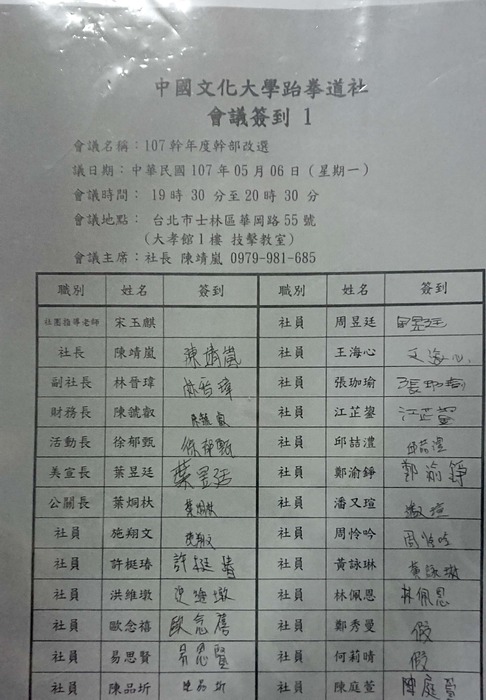 中國文化大學跆拳道社
會議簽到 1
會議名稱：107幹年度幹部改選
議日期：中華民國 107 年 05 月 06 日（星期一）
會議時間： 19 時 30 分至 20 時 30 分
會議地點： 台北市士林區華岡路 55 號
（大孝館 1 樓 技擊教室）
會議主席：社長 陳靖嵐 0979-981-685
職別 姓名 簽到 職別 姓名 簽到
社團指導老師 宋玉麒 社員 周昱廷 周昱廷
社長 陳靖嵐 陳靖嵐 社員 王海心 王海心
副社長 林晉瑋 林晉瑋 社員 張珈瑜 張珈瑜
財務長 陳虢叡 陳虢叡 社員 江芷鋆 江芷鋆
活動長 徐郁甄 徐郁甄 社員 邱喆澧 邱喆澧
美宣長 葉昱廷 葉昱廷 社員 鄭渝錚 鄭渝錚
公關長 葉炯杕 葉炯杕 社員 潘又瑄
社員 施翔文 社員 周怜吟 周怜吟
社員 許梴瑃 許梴瑃 社員 黃詠琳 黃詠琳
社員 洪維墩 洪維墩 社員 林佩恩 林佩恩
社員 歐念禧 歐念禧 社員 鄭秀曼 假
社員 易思賢 易思賢 社員 何莉晴 假
社員 陳品圻 陳品圻 社員 陳庭萱 陳庭萱